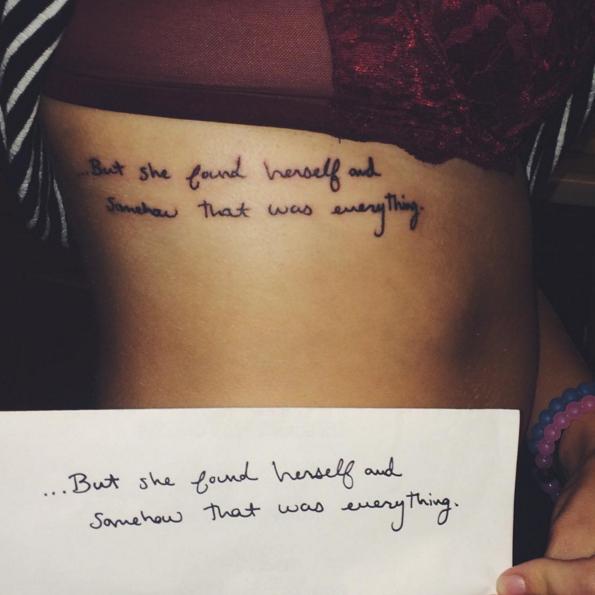 ...But she found herself and
Somehow that was everything.
...But she found herself and
Somehow that was everything.